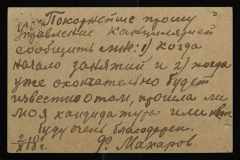 Покорнѣйше прошу
управленiе канцелярiей
сообщить мнѣ: 1) когда
начало занятiй и 2) когда
уже окончательно будет
известно о том, прошла ли
моя кандидатура или нет
Буду очень благодарен.
Ф. Махаров